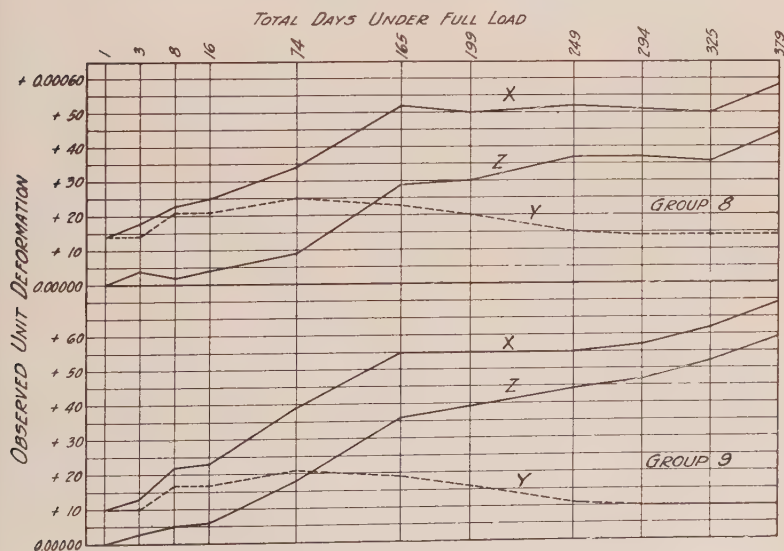 TOTAL DAYS UNDER FULL LOAD
1 3 8 16 74 165 199 249 294 325 379
OBSERVED UNIT DEFORMATION
+ 0.00060
+ 50
+ 40
+ 30
+ 20
+ 10
0.00000
X
Z
Y
GROUP 8
+ 60
+ 50
+ 40
+ 30
+ 20
+ 10
0.00000
X
Z
Y
GROUP 9